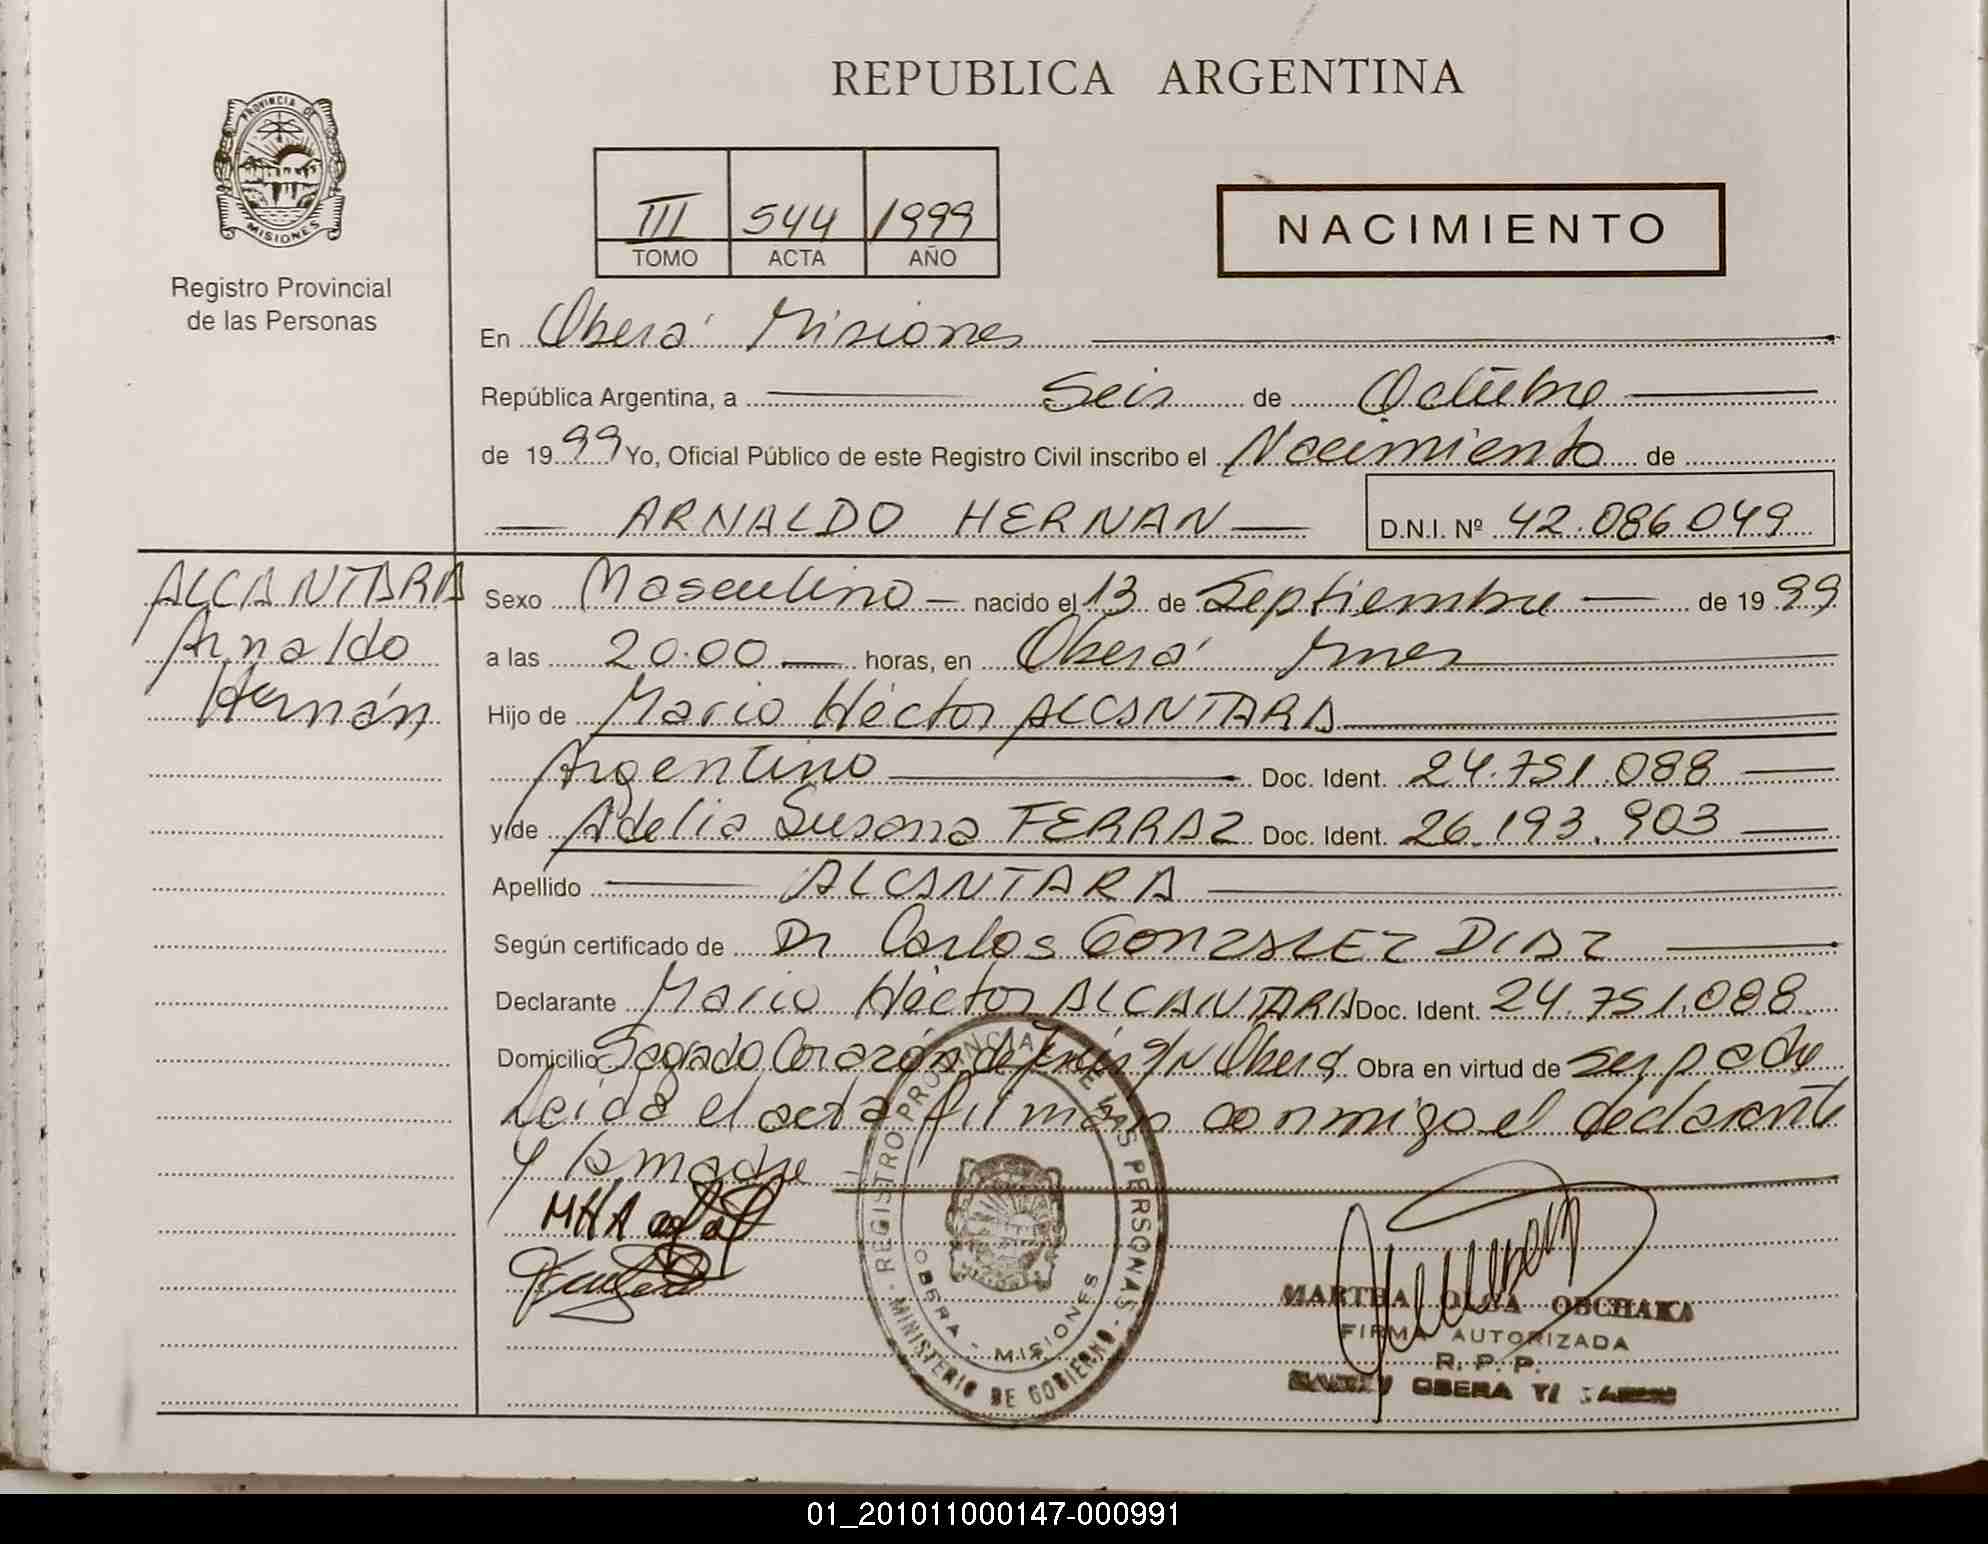 REPUBLICA ARGENTINA
PROVINCIA DE
MISIONES
Registro Provincial
de las Personas
III 544 1999
TOMO ACTA AÑO
NACIMIENTO
En Oberá Misiones
República Argentina, a Seis de Octubre
de 1999 Yo, Oficial Público de este Registro Civil inscribo el Nacimiento de
ARNALDO HERNAN D.N.I. Nº 42.086.049
ALCANTARA
Arnaldo
Hernán
Sexo Masculino nacido el 13 de Septiembre de 1999
a las 20.00 horas, en Oberá Mnes
Hijo de Mario Héctor ALCANTARA
Argentino Doc. Ident. 24.751.088
y de Adelia Susana FERRAZ Doc. Ident. 26.193.903
Apellido ALCANTARA
Según certificado de Dr Carlos GONZALEZ DIAZ
Declarante Mario Héctor ALCANTARA Doc. Ident. 24.751.088
Domicilio Sagrado Corazón de Jesús S/N Oberá Obra en virtud de ser padre
Leída el acta firman conmigo el declarante
y la madre
MHA
REGISTRO PROVINCIAL DE LAS PERSONAS
OBERA - MISIONES
MINISTERIO DE GOBIERNO
MARTHA OLGA OBCHAKA
FIRMA AUTORIZADA
R. P. P.
OBERA
01_201011000147-000991